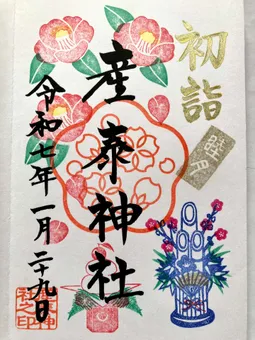 初詣
睦月
産泰神社
令和七年一月二十九日
産泰神
社之印